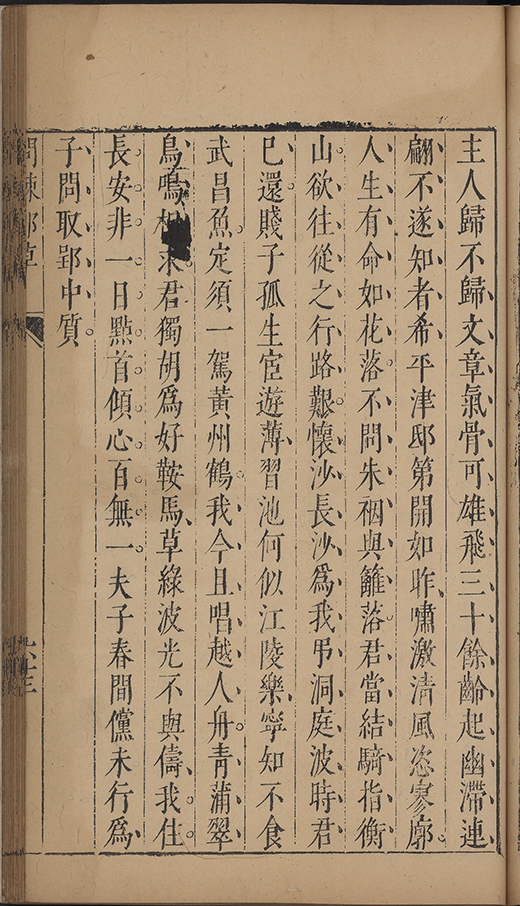 主人歸不歸文章氣骨可雄飛三十餘齡起幽滯連
翩不遂知者希平津邸第開如昨嘯激清風恣寥廓
人生有命如花落不問朱裀與籬落君當結騎指衡
山欲往從之行路艱懷沙長沙為我弔洞庭波時君
已還賤子孤生宦遊薄習池何似江陵樂寧知不食
武昌魚定須一駕黃州鶴我今且唱越人舟青蒲翠
鳥鳴相求君獨胡為好鞍馬草綠波光不與儔我住
長安非一日點首傾心百無一夫子春間儻未行為
子問取郢中質
問棘郵草
六十三